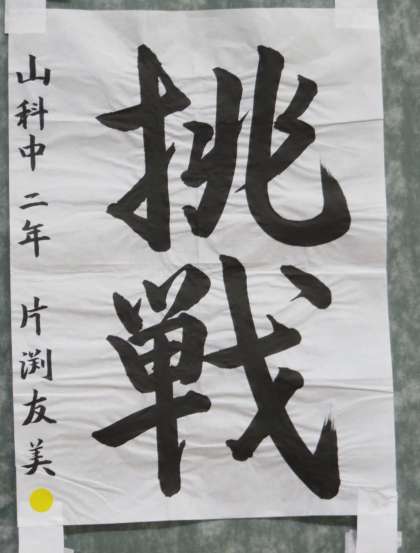 挑戦
山科中 二年 片渕友美